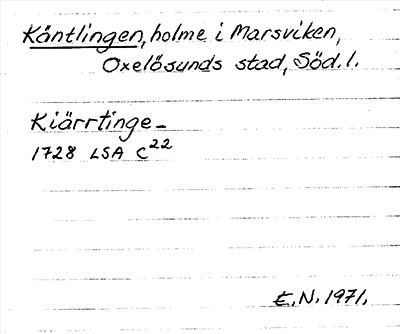 Käntlingen, holme i Marsviken,
Oxelösunds stad, Söd. l.
Kiärrtinge-
1728 LSA C22
E.N. 1971.